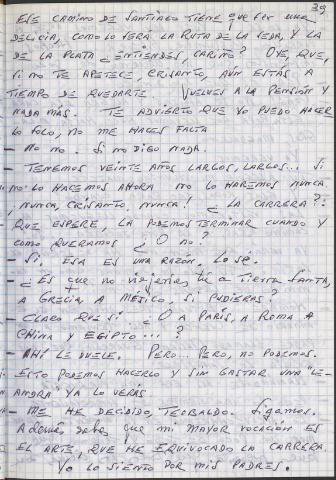 39
ESE CAMINO DE SANTIAGO TIENE que SER UNA
DELICIA, COMO LO SERÁ LA RUTA DE LA SEDA, Y LA
DE LA PLATA ¿ENTIENDES, CARIÑO? OYE, QUE,
SI NO TE APETECE, CRISANTO, AÚN ESTÁS A
TIEMPO DE QUEDARTE VUELVES A LA PENSIÓN Y
NADA MÁS. TE ADVIERTO QUE YO PUEDO HACER
LO SOLO, NO ME HACES FALTA
- NO NO. SI NO DIGO NADA.
- TENEMOS VEINTE AÑOS LARGOS, LARGOS... SI
NO LO HACEMOS AHORA NO LO HAREMOS NUNCA,
¡NUNCA, CRISANTO, NUNCA! ¿LA CARRERA?:
QUE ESPERE, LA PODEMOS TERMINAR CUANDO Y
COMO QUERAMOS ¿O NO?
- SÍ, ESA ES UNA RAZÓN, LO SÉ.
- ¿ES QUE NO viajarías tú a Tierra Santa,
A GRECIA, A MÉXICO, SI PUDIERAS?
- CLARO QUE SÍ ¿O A PARÍS, A ROMA A
CHINA Y EGIPTO...?
- AHÍ LE DUELE. PERO... PERO, NO PODEMOS.
ESTO PODEMOS HACERLO Y SIN GASTAR UNA "LE-
ANDRA" YA LO VERÁS
- ME HE DECIDIDO, TEOBALDO. Sigamos.
Además sabes que mi MAYOR VOCACIÓN ES
EL ARTE, QUE HE EQUIVOCADO LA CARRERA.
YO LO SIENTO POR MIS PADRES.